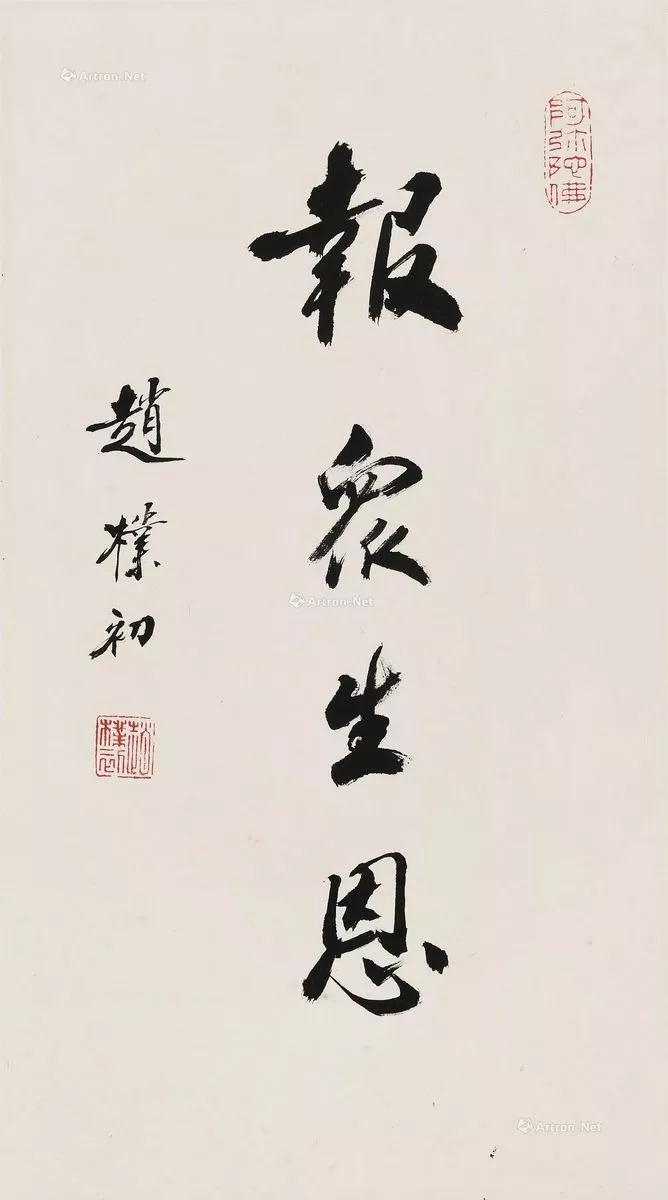 報眾生恩
趙樸初
阿彌陀佛
趙樸初
Artron.Net
Artron.Net
Artron.Net